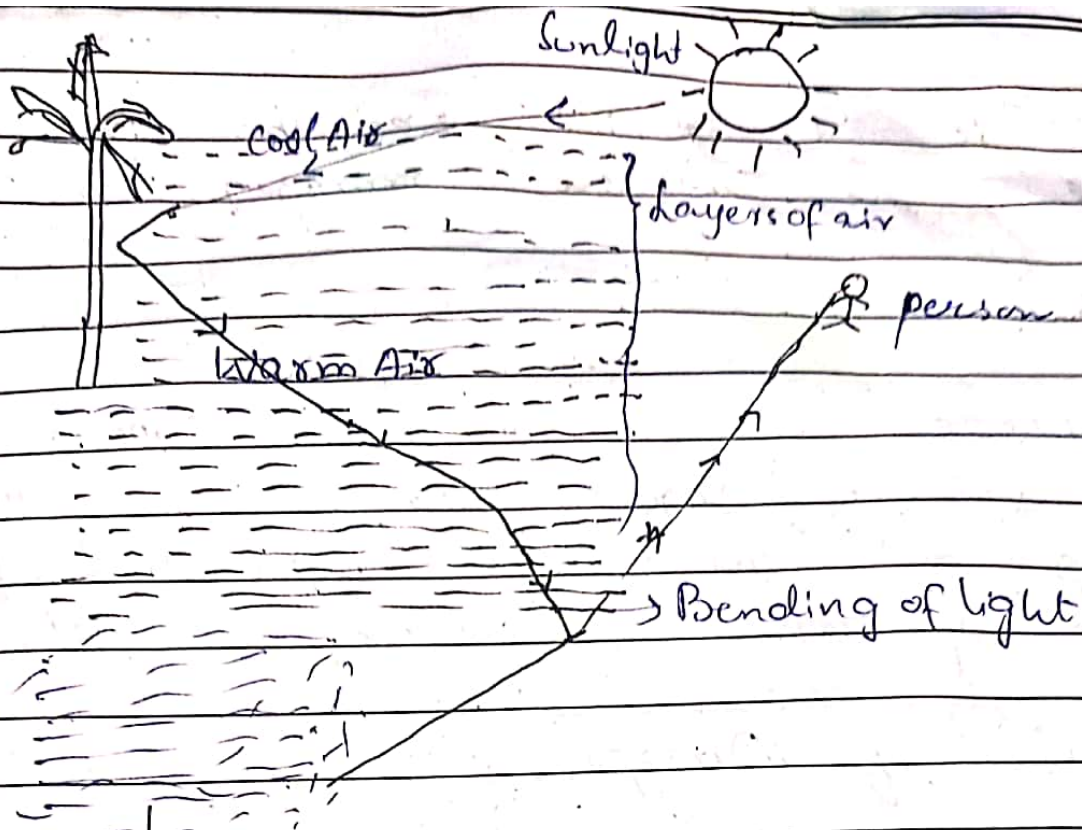 Sunlight
cool Air
Layers of air
person
Warm Air
Bending of light